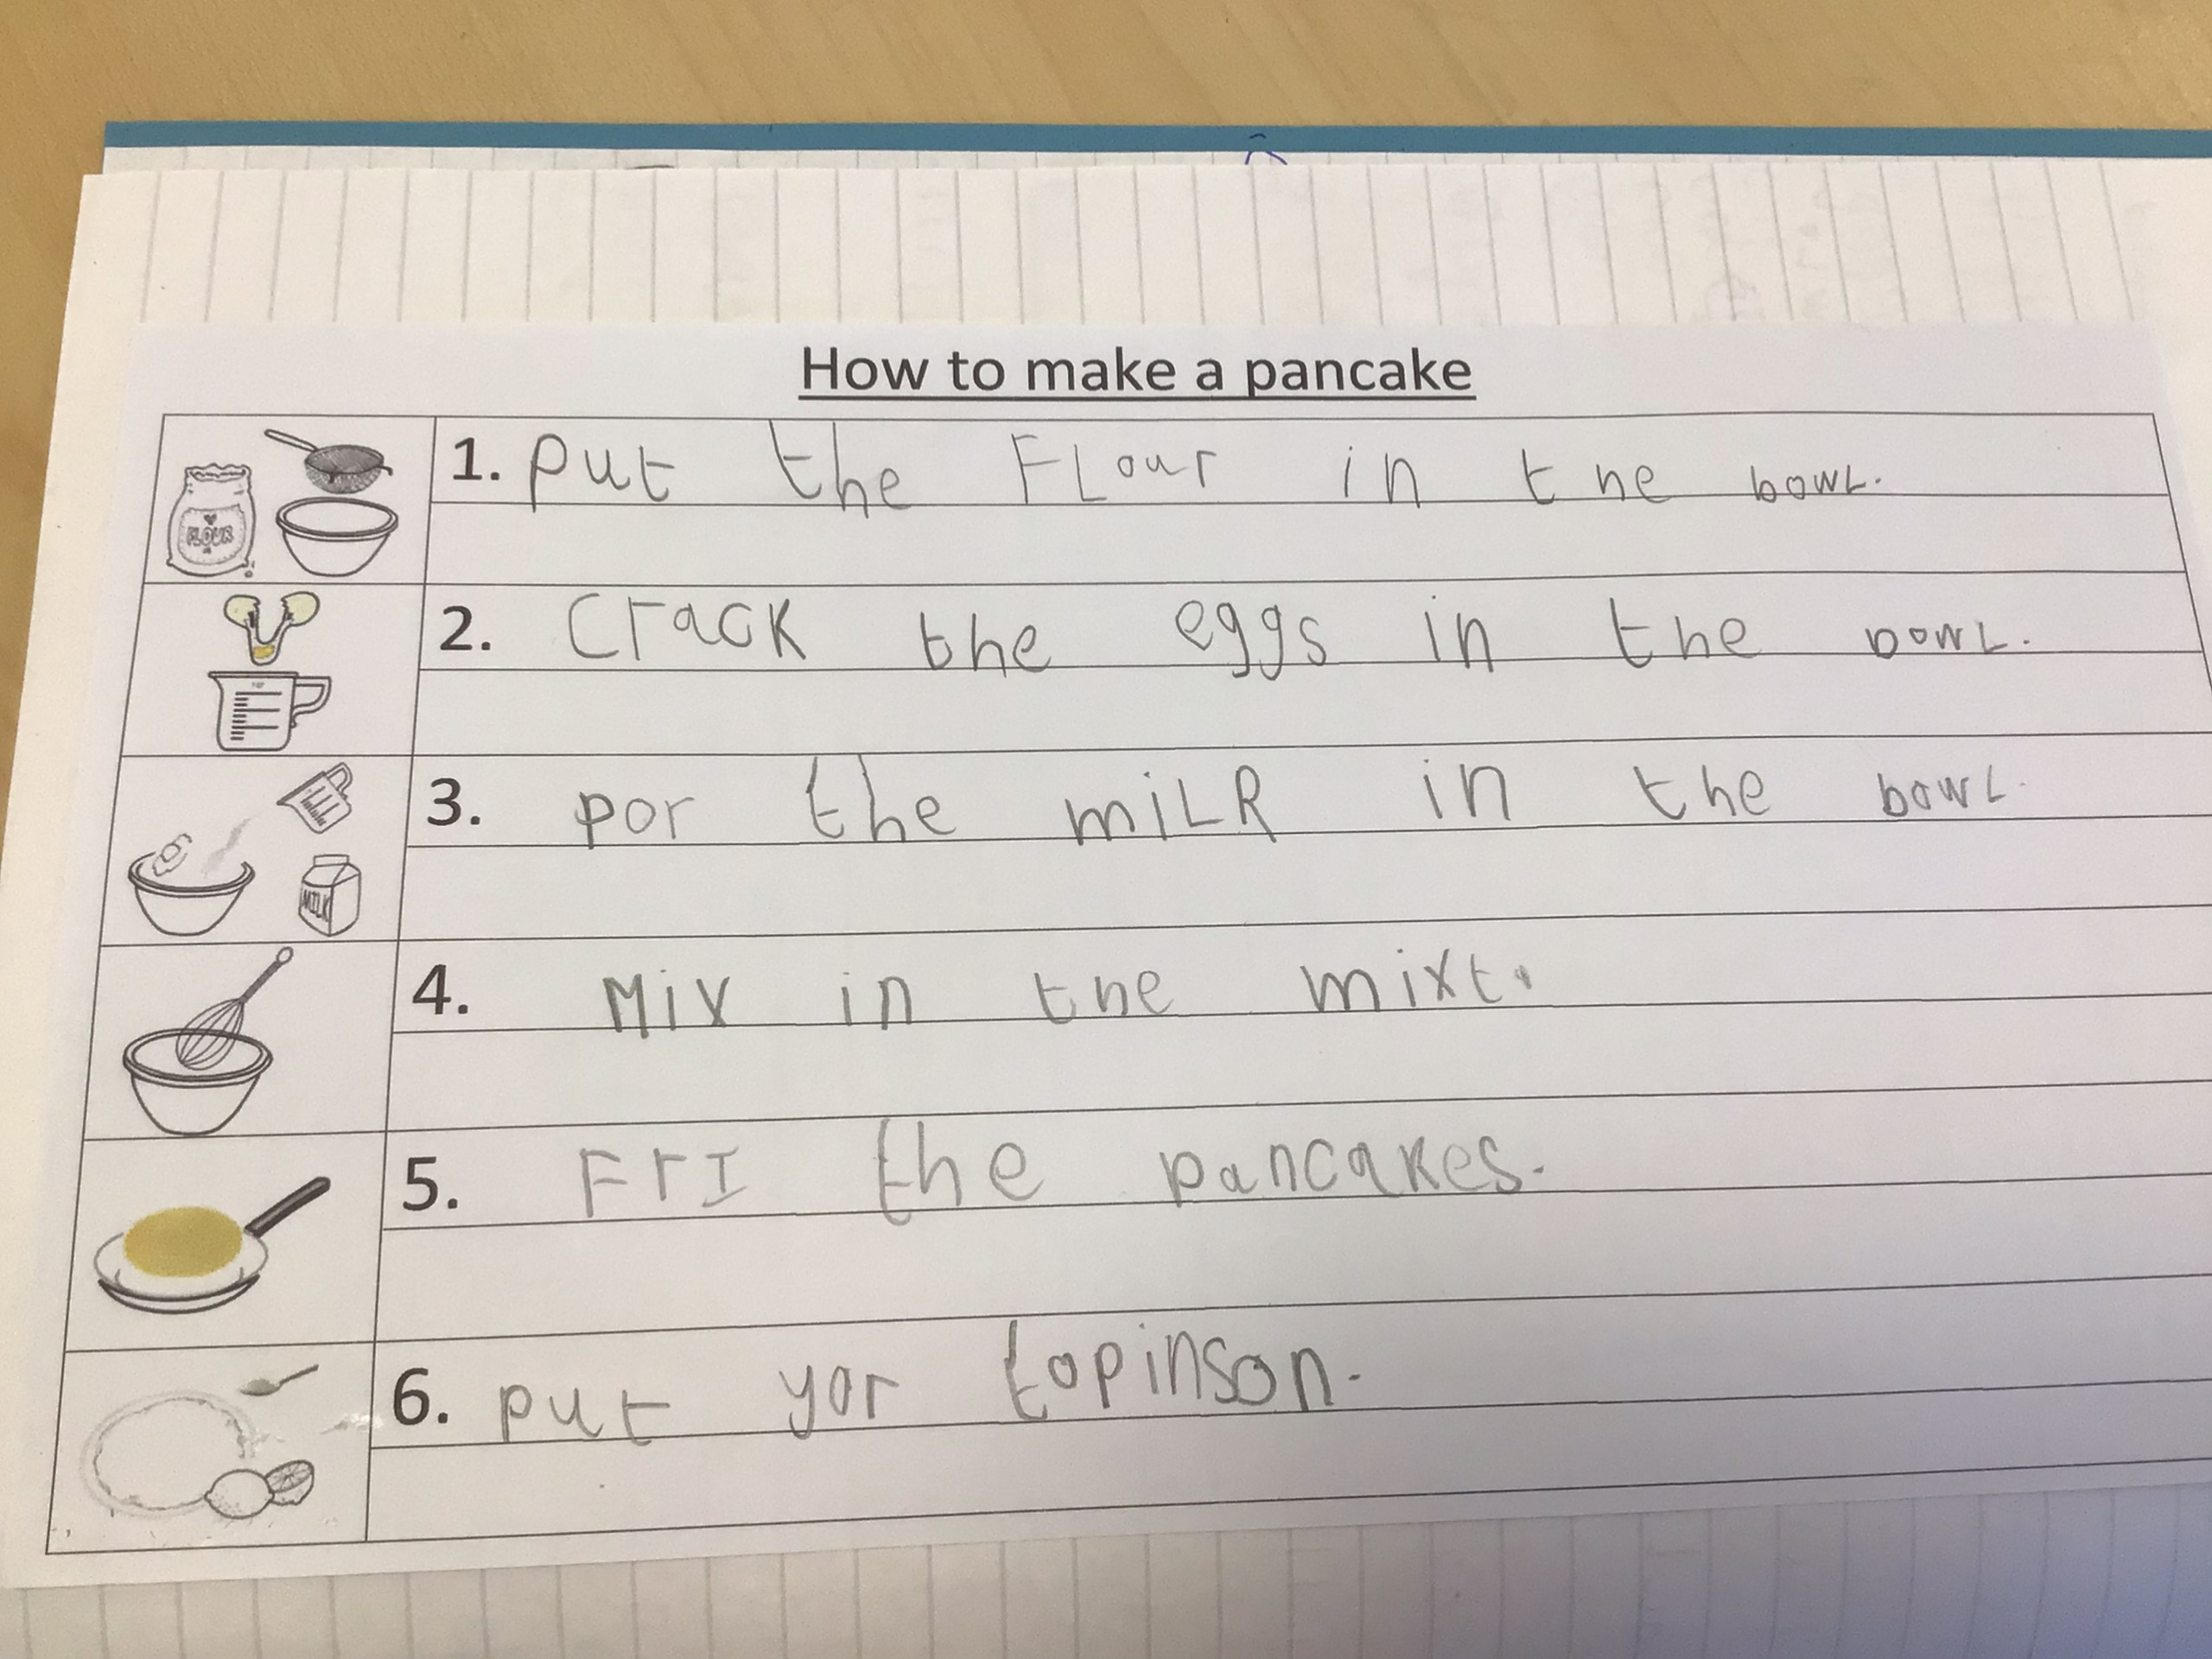 How to make a pancake
FLOUR
1. put the FLour in the bowL.
2. Crack the eggs in the bowL.
3. por the miLk in the bowL.
MILK
4. Mix in the mixt.
5. FrI the pancakes.
6. put yor topinson.